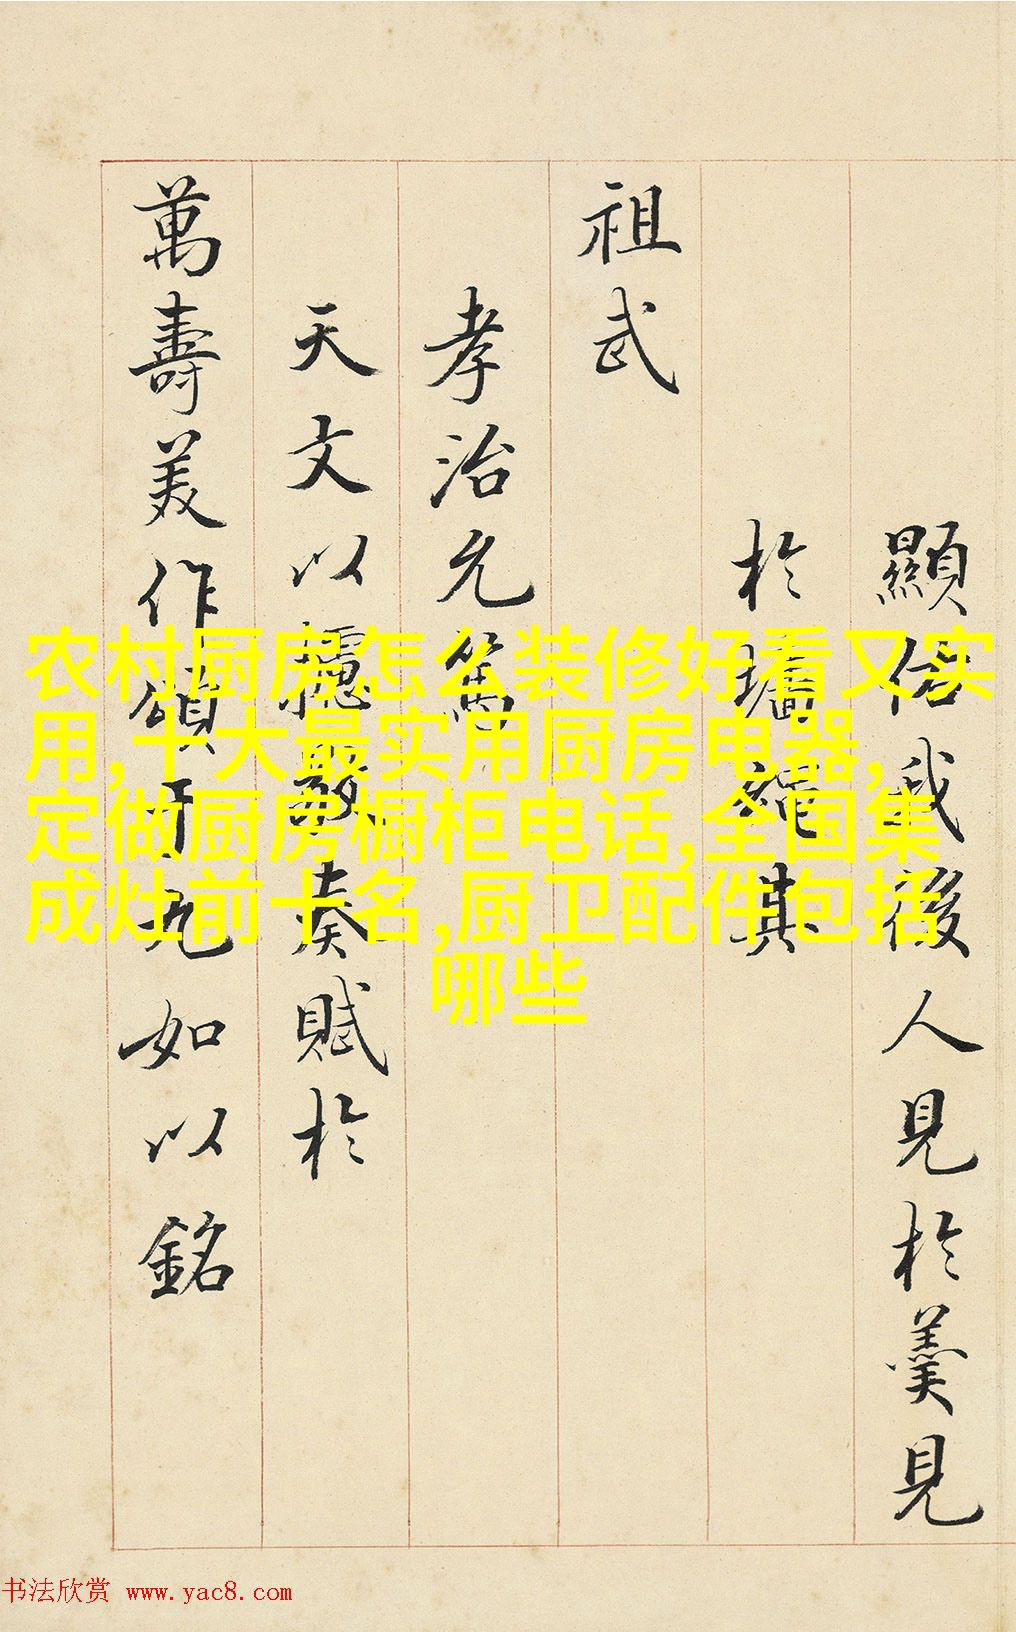 顯佑我後人見於羹見
於墻繩其
祖武
孝治允篤
天文以奏賦於
萬壽美作頌于九如以銘
农村厨房怎么装修好看又实
用,十大最实用厨房电器,
定做厨房橱柜电话,全国集
成灶前十名,厨卫配件包括
哪些
书法欣赏 www.yac8.com